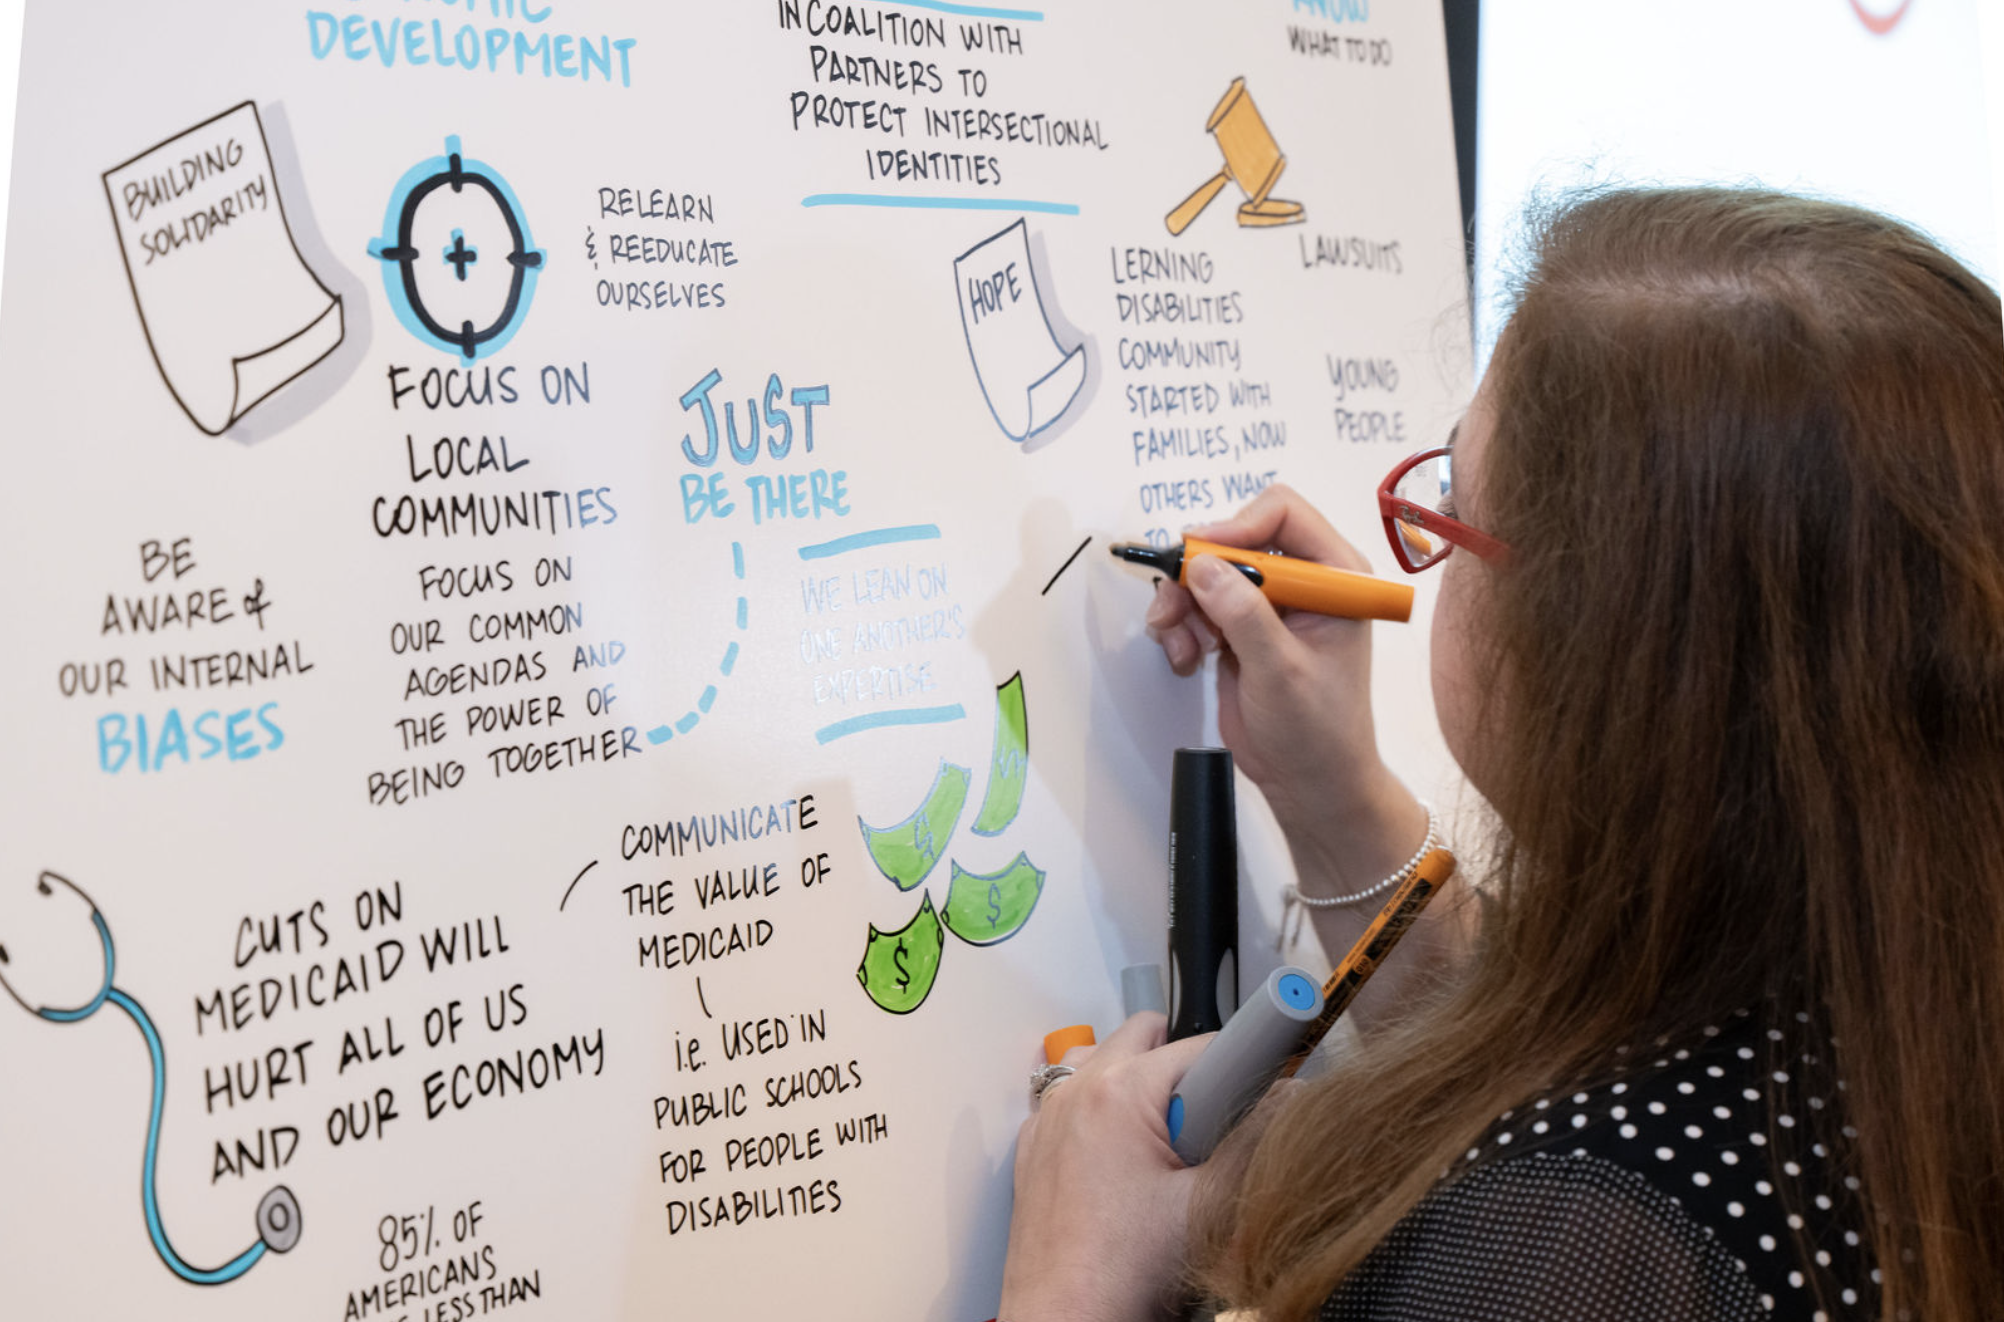 DEVELOPMENT
IN COALITION WITH
PARTNERS TO
PROTECT INTERSECTIONAL
IDENTITIES
KNOW
WHAT TO DO
BUILDING
SOLIDARITY
RELEARN
& REEDUCATE
OURSELVES
FOCUS ON
LOCAL
COMMUNITIES
FOCUS ON
OUR COMMON
AGENDAS AND
THE POWER OF
BEING TOGETHER
JUST
BE THERE
WE LEAN ON
ONE ANOTHER'S
EXPERTISE.
HOPE
LERNING
DISABILITIES
COMMUNITY
STARTED WITH
FAMILIES, NOW
OTHERS WANT
TO
LAWSUITS
YOUNG
PEOPLE
BE
AWARE of
OUR INTERNAL
BIASES
CUTS ON
MEDICAID WILL
HURT ALL OF US
AND OUR ECONOMY
COMMUNICATE
THE VALUE OF
MEDICAID
i.e. USED IN
PUBLIC SCHOOLS
FOR PEOPLE WITH
DISABILITIES
$
$
$
85% OF
AMERICANS
LESS THAN